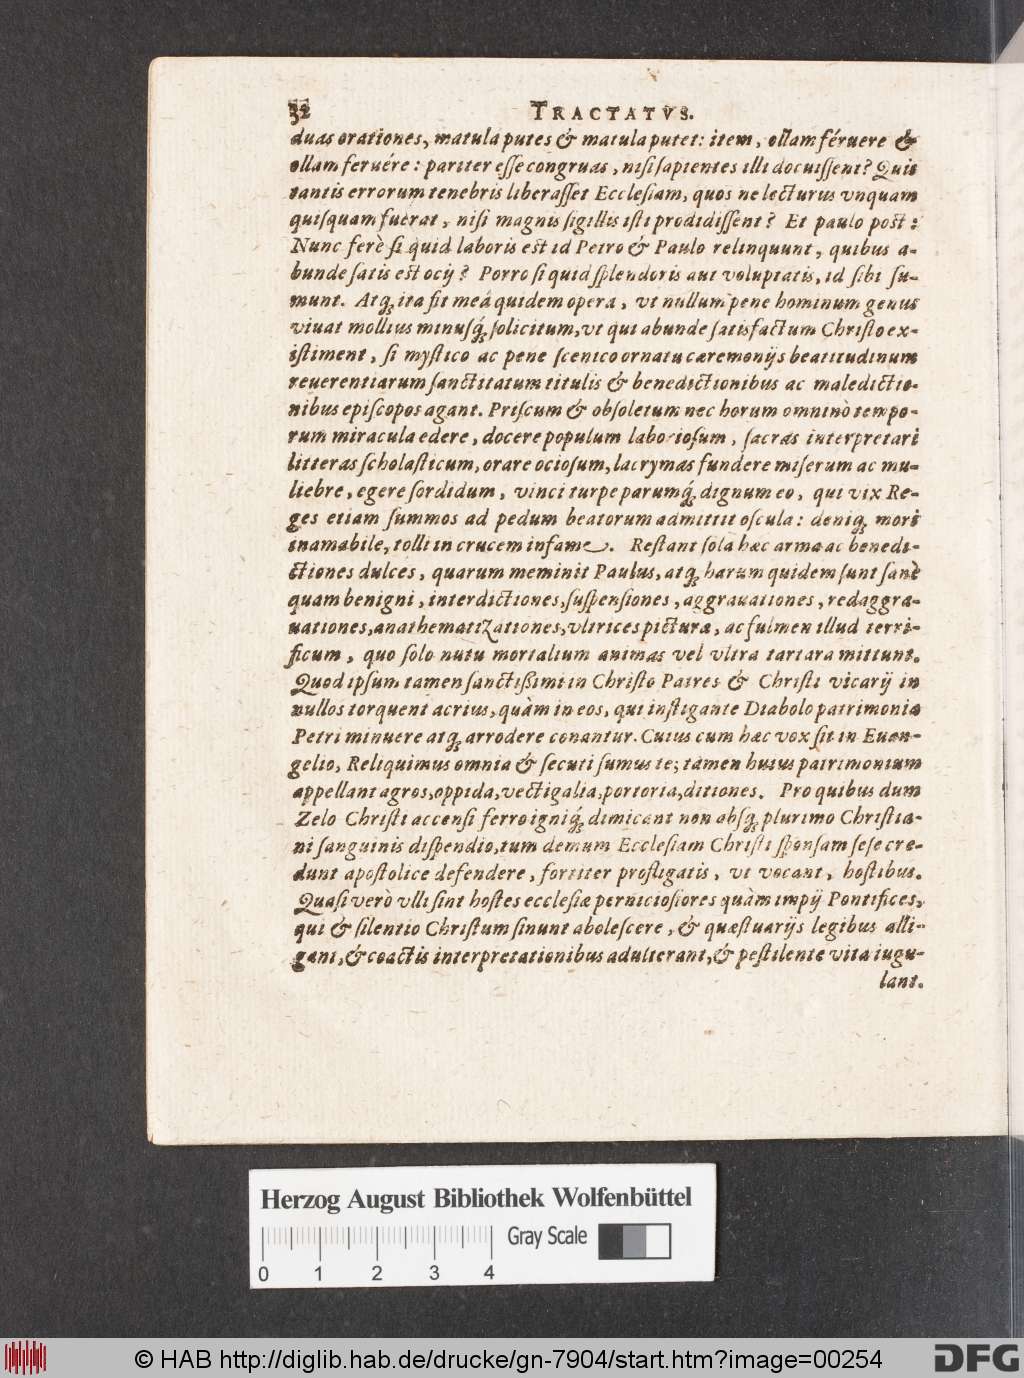 32 TRACTATVS.
duas orationes, matula putes & matula putet: item, ollam féruere &
ollam feruére: pariter eſſe congruas, niſi ſapientes illi docuiſſent? Quis
tantis errorum tenebris liberaſſet Eccleſiam, quos ne lecturus vnquam
quiſquam fuerat, niſi magnis ſigillis iſti prodidiſſent? Et paulo post:
Nunc ferè ſi quid laboris est id Petro & Paulo relinquunt, quibus a-
bunde ſatis est ocij? Porro ſi quid ſplendoris aut voluptatis, id ſibi ſu-
munt. Atq; ita fit meâ quidem opera, vt nullum pene hominum genus
viuat mollius minuſq́; ſolicitum, vt qui abunde ſatisfactum Chriſto ex-
iſtiment, ſi myſtico ac pene ſcenico ornatu cæremonijs beatitudinum
reuerentiarum ſanctitatum titulis & benedictionibus ac maledictio-
nibus epiſcopos agant. Priſcum & obſoletum nec horum omninò tempo-
rum miracula edere, docere populum laborioſum, ſacras interpretari
litteras ſcholaſticum, orare ocioſum, lacrymas fundere miſerum ac mu-
liebre, egere ſordidum, vinci turpe parumq́; dignum eo, qui vix Re-
ges etiam ſummos ad pedum beatorum admittit oſcula: deniq; mori
inamabile, tolli in crucem infame. Reſtant ſola hæc arma ac benedi-
ctiones dulces, quarum meminit Paulus, atq; harum quidem ſunt ſanè
quam benigni, interdictiones, ſuſpenſiones, aggrauationes, redaggra-
uationes, anathematizationes, vltrices picturæ, ac fulmen illud terri-
ficum, quo ſolo nutu mortalium animas vel vltra tartara mittunt.
Quod ipſum tamen ſanctißimi in Chriſto Patres & Chriſti vicarij in
nullos torquent acrius, quàm in eos, qui inſtigante Diabolo patrimonia
Petri minuere atq; arrodere conantur. Cuius cum hæc vox ſit in Euan-
gelio, Reliquimus omnia & ſecuti ſumus te; tamen huius patrimonium
appellant agros, oppida, vectigalia, portoria, ditiones. Pro quibus dum
Zelo Chriſti accenſi ferro igniq́; dimicant non abſq; plurimo Chriſtia-
ni ſanguinis diſpendio, tum demum Eccleſiam Chriſti ſponſam ſeſe cre-
dunt apoſtolice defendere, fortiter profligatis, vt vocant, hoſtibus.
Quaſi verò vlli ſint hoſtes eccleſiæ pernicioſiores quàm impij Pontifices,
qui & ſilentio Chriſtum ſinunt aboleſcere, & quæſtuarijs legibus alli-
gant, & coactis interpretationibus adulterant, & peſtilente vita iugu-
lant.
Herzog August Bibliothek Wolfenbüttel
Gray Scale
0 1 2 3 4
© HAB http://diglib.hab.de/drucke/gn-7904/start.htm?image=00254
DFG